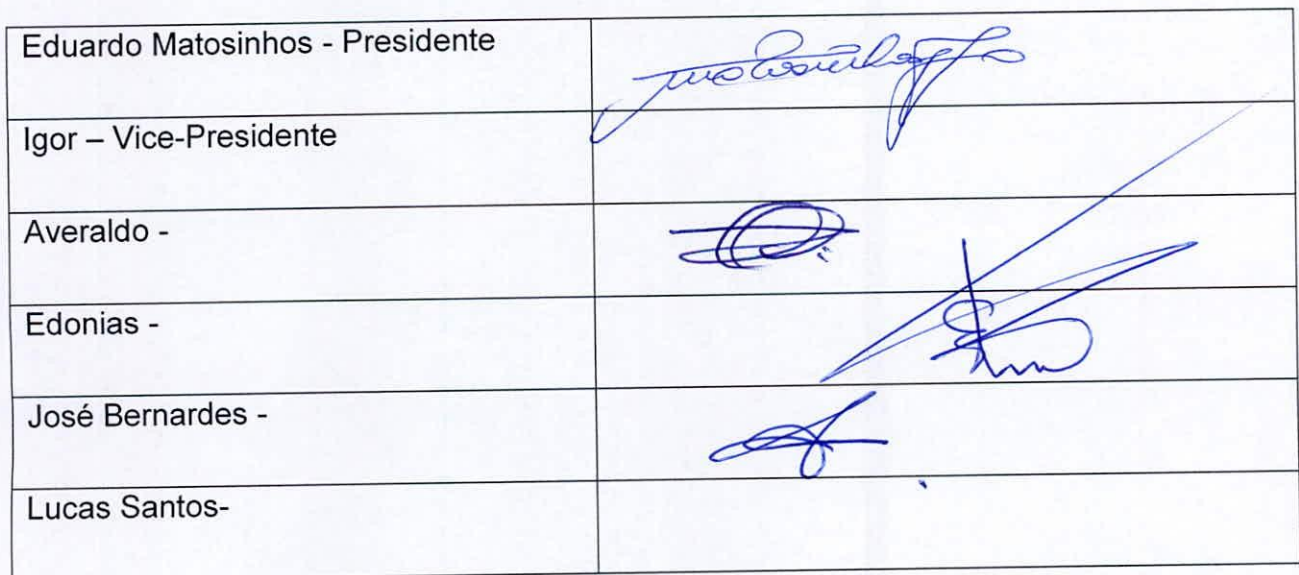 Eduardo Matosinhos - Presidente
Igor – Vice-Presidente
Averaldo -
Edonias -
José Bernardes -
Lucas Santos-